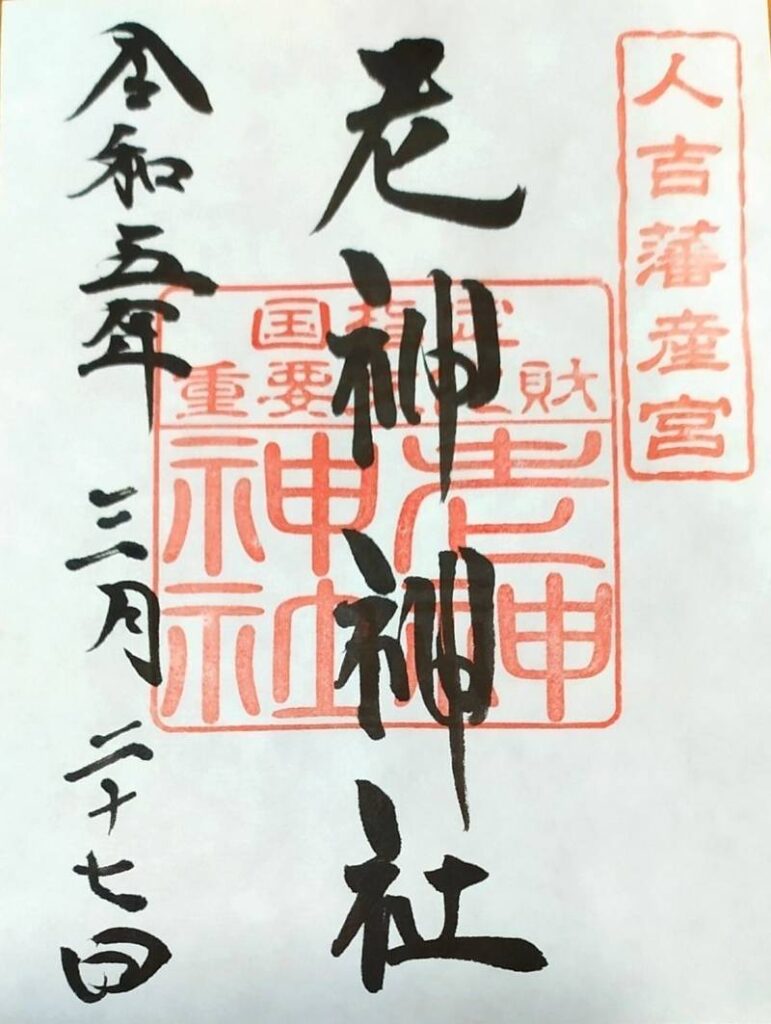 人吉藩産宮
老神神社
国指定
重要文化財
老神
神社
令和五年 三月 二十七日